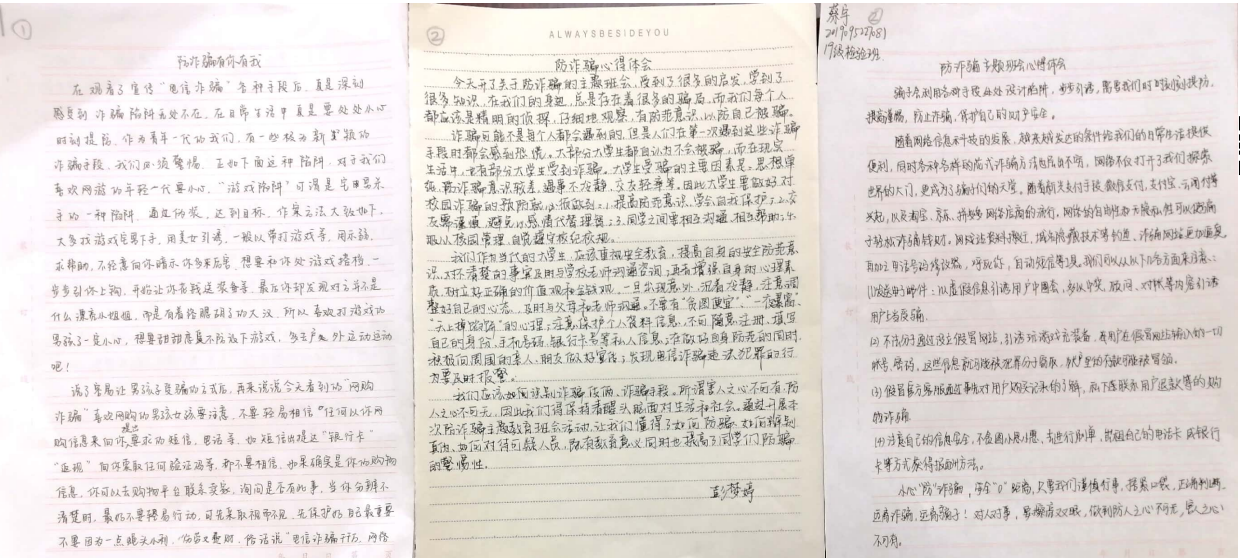 ①
防诈骗有你有我
在观看了宣传“电信诈骗”各种手段后，真是深刻
感受到诈骗陷阱无处不在，在日常生活中真是要处处小心
时刻提防，作为青年一代的我们，有一些极为新颖的
诈骗手段，我们必须警惕。正如下面这种陷阱，对于我们
喜欢网游的年轻一代要小心，“游戏陷阱”可谓是宅男杀
手的一种陷阱，通过伪装，达到目标，作案方法大致如下，
大多找游戏宅男下手，用美女引诱，一般以带打游戏等，用示弱，
求帮助，不经意向你暗示你多厉害，想要和你处游戏搭档，一
步步引你上钩，开始让你看钱送装备等，最后你却发现对方不是
什么漂亮小姐姐，而是有着络腮胡子的大汉，所以喜欢打游戏的
男孩子一定小心，想要甜甜度夏不防放下游戏，多去户外运动运动
吧！
说了容易让男孩子受骗的方式后，再来说说今天看到的“网购
诈骗”喜欢网购的男孩女孩要注意，不要轻易相信“任何以你网
购信息来向你提出要求的短信，电话等，如短信出现这“银行卡”
“返现”向你索取任何验证码等，都不要相信，如果确实是你的购物
信息，你可以去购物平台联系卖家，询问是否有此事，当你分辨不
清楚时，最好不要轻易行动，可先采取视而不见，先保护好自己最重要
不要因为一点蝇头小利，伤害又费财，俗话说“电信诈骗千万，网络
②
ALWAYSBESIDEYOU
防诈骗心得体会
今天开了关于防诈骗的主题班会，受到了很多的启发，学到了
很多知识，在我们的身边，总是存在着很多的骗局，而我们每个人
都应该是精明的侦探，仔细地观察，有防范意识，以防自己被骗。
诈骗可能不是每个人都会遇到的，但是人们在第一次遇到这些诈骗
手段时都会感到恐慌。大部分大学生都自认为不会被骗，而在现实
生活中，也有部分大学生受到诈骗，大学生受骗的主要因素是：思想单
纯，防诈骗意识较差，遇事不冷静，交友轻率等。因此大学生要做好对
校园诈骗的预防就必须做到：1.提高防范意识，学会自我保护；2.交
友要谨慎，避免以感情代替理智；3.同学之间要相互沟通，相互帮助；4.
服从校园管理，自觉遵守校纪校规。
我们作为当代的大学生，应该重视安全教育，提高自身的安全防范意
识，对不清楚的事宜及时与学校老师沟通咨询；再者增强自身的心理素
质，树立好正确的价值观和金钱观，一旦出现意外，沉着冷静，注意调
整好自己的心态，及时与父母和老师沟通。不要有“贪图便宜”、“一夜暴富”、
“天上掉馅饼”的心理；注意保护个人资料信息，不可随意注册，填写
自己的身份、手机号码、银行卡号等私人信息；在做好自身防范的同时，
积极向周围的亲人、朋友做好宣传；发现电信诈骗违法犯罪的行
为要及时报警。
我们应该如何识别诈骗伎俩，诈骗手段。所谓害人之心不可有，防
人之心不可无，因此我们得保持着醒头脑面对生活和社会。通过开展本
次防诈骗主题教育班会活动，让我们懂得了如何防骗、如何辨别
真伪、如何对待可疑人员，既有教育意义同时也提高了同学们防骗
的警惕性。
彭梦婷
蔡宇
②
201909527081
19级检验班
防诈骗主题班会心得体会
骗子会利用各种手段处处设计陷阱，步步引诱，需要我们时时刻刻提防，
提高谨慎，防止诈骗，保护自己的财产安全。
随着网络信息科技的发展，越来越发达的条件给我们的日常生活提供
便利，同时各种各样的形式诈骗方法也层出不穷，网络不仅打开了我们探索
世界的大门，更成为了骗子们的天堂。随着相关支付手段，微信支付，支付宝，云闪付等
兴起，以及淘宝，京东，拼多多网络店商的流行，网络的自由性和无限制性可以使骗
子轻松诈骗钱财。
再加上电话号码修改器，呼死你，自动发信等出现，我们可以从以下几各方面来注意：
(1)发送电子邮件：以虚假信息引诱用户中圈套，多以中奖，顾问，对账等内容引诱
用户上当受骗。
(2)不法分子通过设立假冒网站，引诱玩游戏充装备，当用户在假冒网站输入的一切
账号，密码，这些信息就可能被犯罪分子窃取，账户里的存款可能被冒领。
(3)假冒卖方客服通过事先对用户购买记录的了解，私下连联系用户退款等的购
物诈骗
(4)注意自己的信息安全，不贪图小恩小惠，去进行刷单，出租自己的电话卡或银行
卡等方式获得报酬方法。
小心“防”诈骗，安全“0”距离，只要我们谨慎行事，捂紧口袋，
还有诈骗，还有骗子！对人对事，要擦亮双眼，做到防人之心不可无，害人之心
不可有。